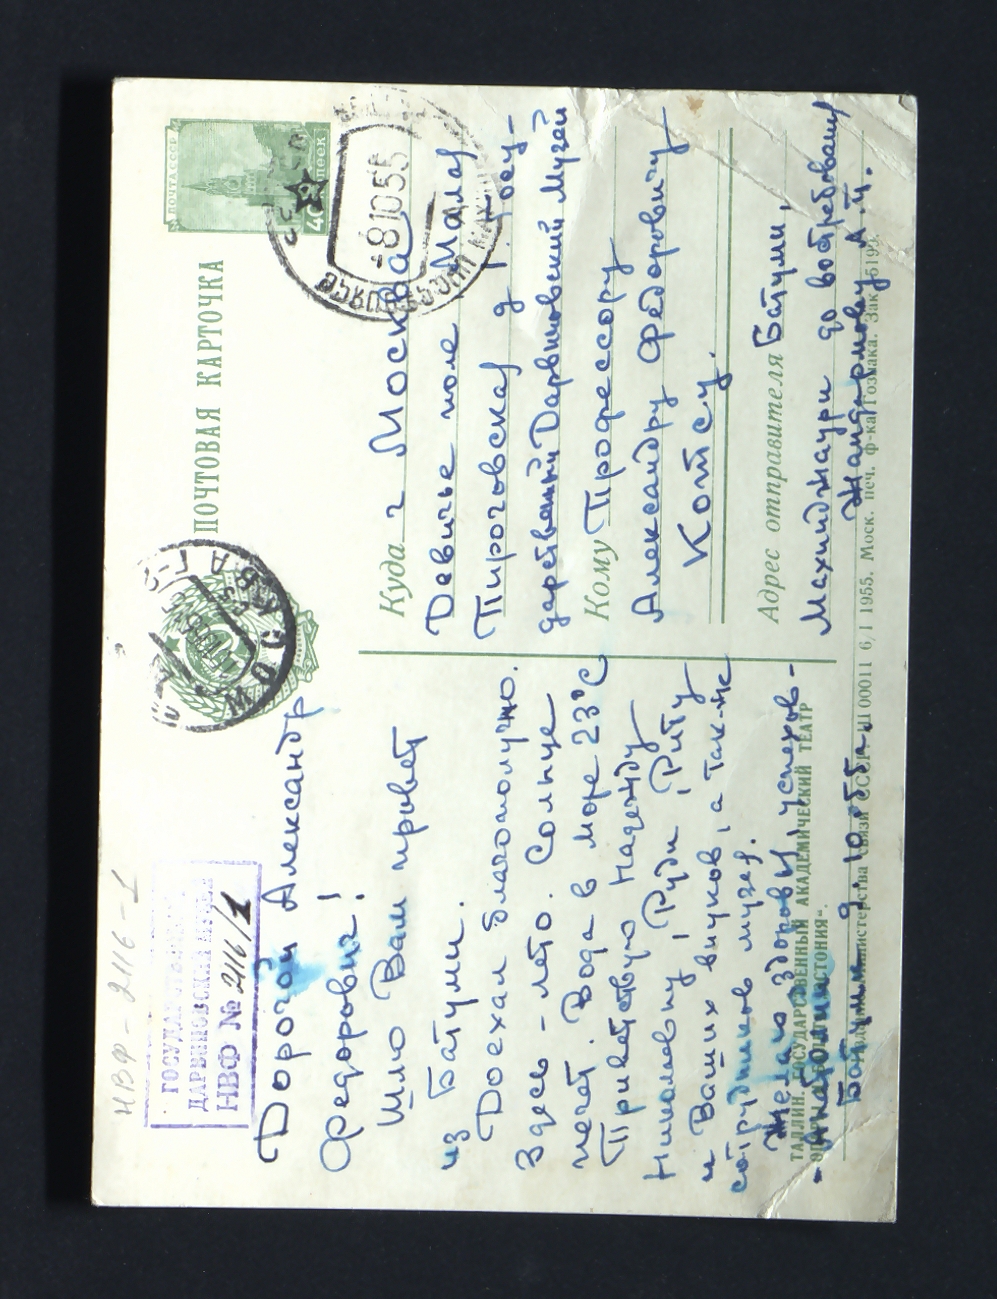 НВФ-2116-1
ГОСУДАР
ДАРВИНОВСКИЙ МУЗЕЙ
НВФ № 2116/1
Дорогой Александр
Федорович!
Шлю Вам привет
из Батуми.
Доехал благополучно.
Здесь - лето. Солнце
печет. Вода в море 23°С
Приветствую Надежду
Николаевну, Руди, Риту
и Ваших внуков, а так-же
сотрудников музея.
Желаю здоровы, успехов-
Батуми 9.10.55г.
ТАЛЛИН. ГОСУДАРСТВЕННЫЙ АКАДЕМИЧЕСКИЙ ТЕАТР
ОПЕРЫ И БАЛЕТА „ЭСТОНИЯ“.
МОСКВА Г-2
ПОЧТОВАЯ КАРТОЧКА
ПОЧТА СССР
40 копеек
-8.10.55
Куда г Москва
Девичье поле Малая
Пироговская д 1 Госу-
дарственный Дарвиновский Музей
Кому Профессору
Александру Федоровичу
Котсу.
Адрес отправителя Батуми,
Махинджаури до востребования
Жандармову А.П.
Издание Министерства связи СССР. Ш 00011 6/I 1955. Моск. печ. ф-ка Гознака. Зак. 5195.